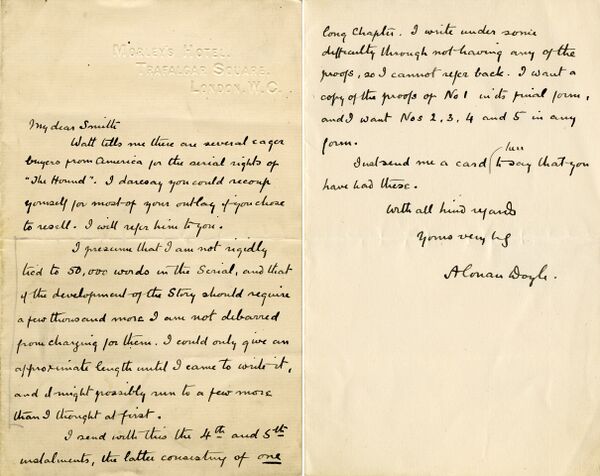 MORLEY'S HOTEL,
TRAFALGAR SQUARE,
LONDON, W.C.
My dear Smith
Watt tells me there are several eager
buyers from America for the serial rights of
"The Hound". I daresay you could recoup
yourself for most of your outlay if you chose
to resell. I will refer him to you.
I presume that I am not rigidly
tied to 50,000 words in the Serial, and that
if the development of the Story should require
a few thousand more I am not debarred
from charging for them. I could only give an
approximate length until I came to write it,
and it might possibly run to a few more
than I thought at first.
I send with this the 4th and 5th
instalments, the latter consisting of one
long Chapter. I write under some
difficulty through not having any of the
proofs, so I cannot refer back. I want a
copy of the proofs of No 1 in its final form,
and I want Nos 2, 3, 4 and 5 in any
form.
Just send me a card (here to say that you
have had these.
With all kind regards
Yours very
A Conan Doyle.